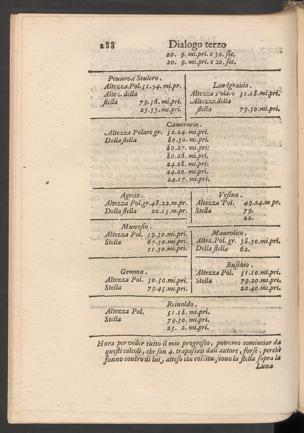 288 Dialogo terzo
20. 9. mi.pri. e 30. sec.
20. 9. mi.pri. e 20. sec.
Peucero e Sculero.
Altezza Pol. 51.54. mi.pr.
Altez. della
stella 79.56. mi.pri.
23.33. mi.pri.
Landgravio.
Altezza Polare 51.18. mi.pri.
Altezza della
stella 79.30. mi.pri.
Camerario.
Altezza Polare gr. 52.24. mi.pri.
Della stella 80.30. mi.pri.
80.27. mi.pri.
80.26. mi.pri.
24.28. mi.pri.
24.20. mi.pri.
24.17. mi.pri.
Agecio.
Altezza Pol.gr.48.22.m pr.
Della stella 20.15. m.pr.
Vrsino.
Altezza Pol. 49.24. m pr.
Stella 79.
22.
Munosio.
Altezza Pol. 39.30. mi.pri.
Stella 67.30. mi.pri.
11.30. mi.pri.
Maurolico.
Altez. Pol. gr. 38.30. mi.pri.
Della stella 62.
Gemma.
Altezza Pol. 50.50. mi.pri.
Stella 79.45. mi.pri.
Buschio.
Altezza Pol. 51.10. mi.pri.
Stella 79.20. mi.pri.
22.40. mi.pri.
Reinoldo.
Altezza Pol. 51.18. mi.pri.
Stella 79.30. mi.pri.
23. 2. mi.pri.
Hora per veder tutto il mio progresso, potremo cominciar da
questi calcoli, che son 4. trapassati dall autore, forse, perchè
fanno contro di lui, atteso che costituiscono la stella sopra la
Luna